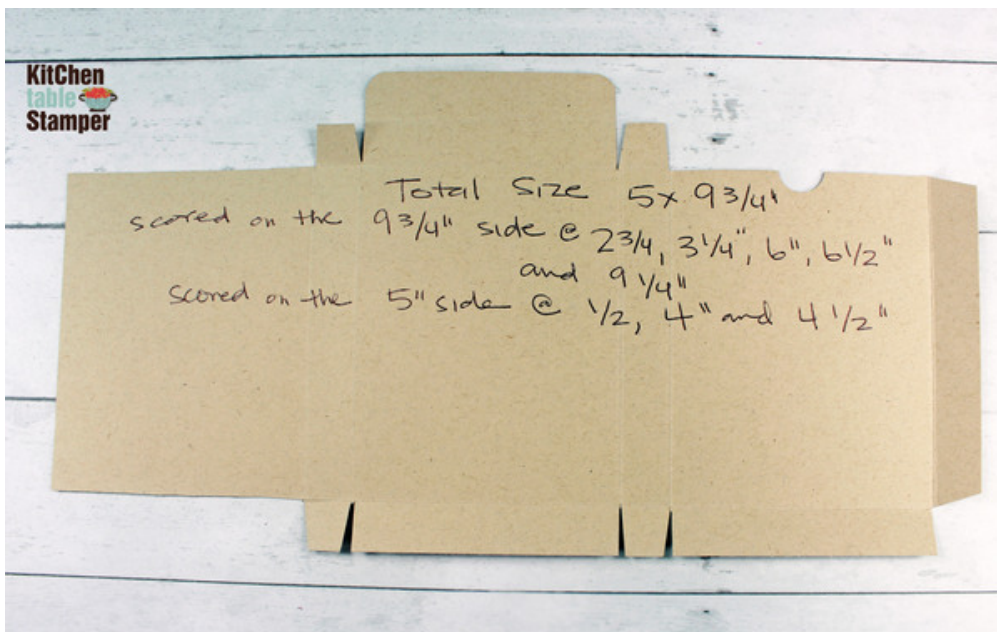 KitChen
table
Stamper
Total Size 5x 9 3/4"
scored on the 9 3/4" side @ 2 3/4, 3 1/4", 6", 6 1/2"
and 9 1/4"
scored on the 5" side @ 1/2, 4" and 4 1/2"